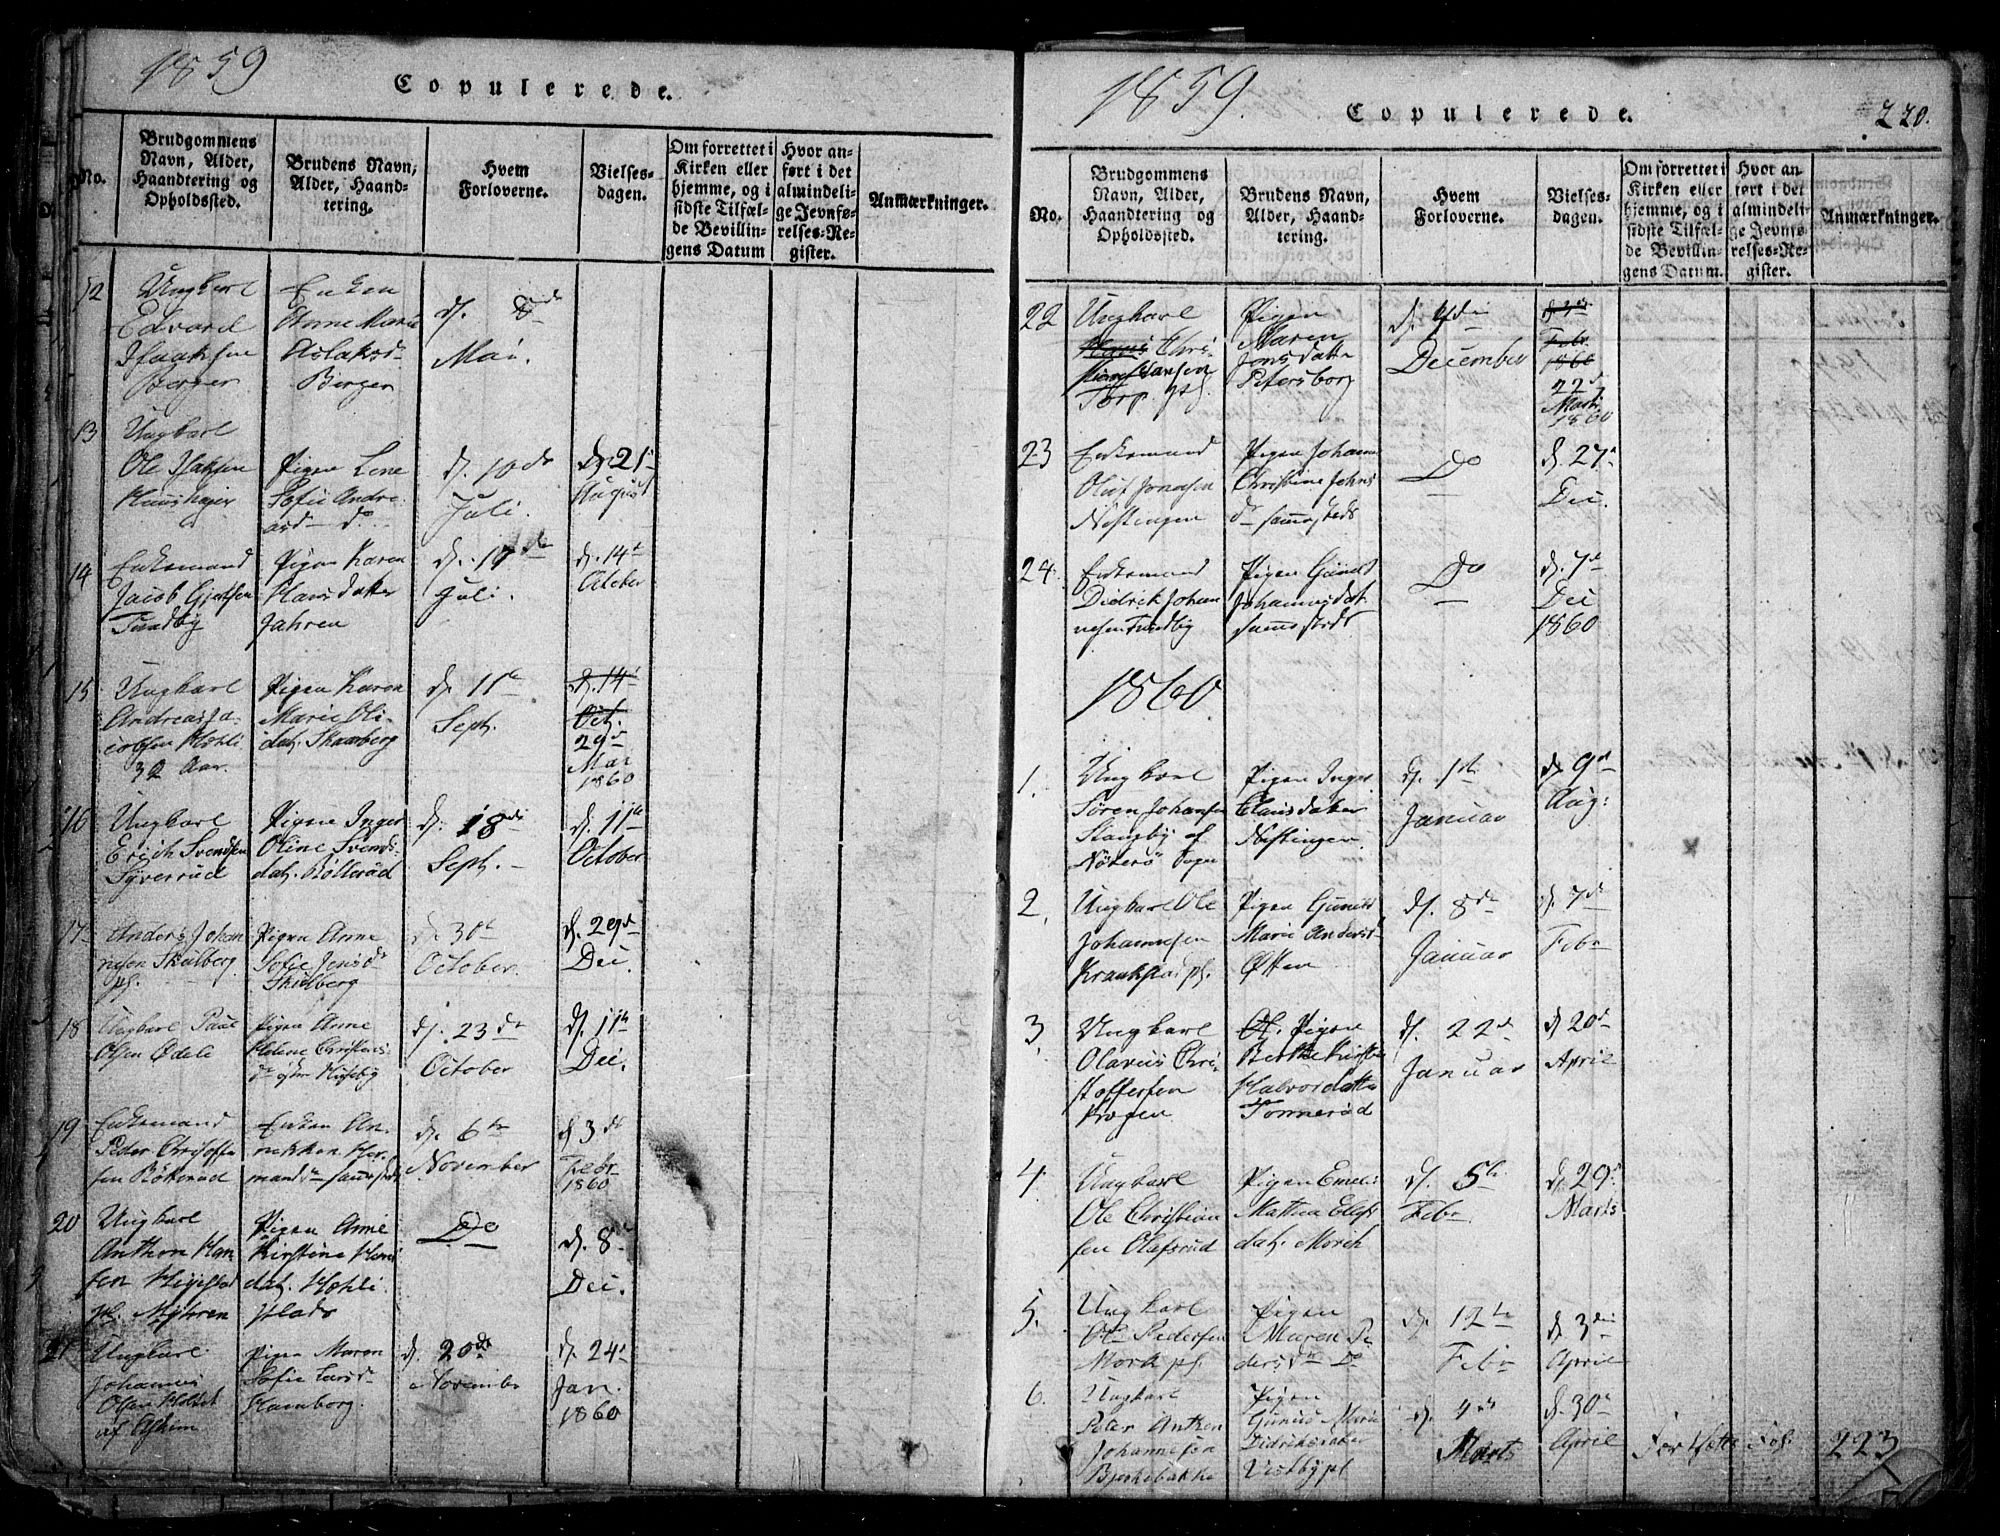 1859
Copulerede.
No.
Brudgommens
Navn, Alder,
Haandtering og
Opholdssted.
Brudens Navn,
Alder, Haand-
tering.
Hvem
Forloverne.
Vielses-
dagen.
Om forrettet i
Kirken eller
hjemme, og i
sidste Tilfæl-
de Bevillin-
gens Datum
Hvor an-
ført i det
almindeli-
ge Jevnfø-
relses-Re-
gister.
Anmærkninger.
12
Ungkarl
Edvard
Isaaksen
Berger
Enken
Anne Marie
Aslaksd
Berger
d. 8de
Mai
13
Ungkarl
Ole
Pigen Lene
Sofie Andre
asd do
d. 10de
Juli.
d. 21
August
14
Enkemand
Jacob
Pigen Karen
Hansdatter
Jahren
d. 17de
Juli.
d. 14de
October
15
Ungkarl
Andreas Ja-
cobsen Hohli
32 Aar.
Pigen Karen
Marie Oli-
dat. Skarberg
d. 11te
Sept.
d. 14
Oct.
29d
Mar
1860
16
Ungkarl
Erich Svendsen
Syverrud
Pigen Inger
Oline Svends-
dat. Rollerud
d. 18de
Sept.
d. 11te
October
17
Anders Johan
nesen Skalberg
pl.
Pigen Anne
Sofie Jensd
Skidberg
d. 30te
October
d. 29d
Dec.
18
Ungkarl Paul
Olsen Ødeli
Pigen Anne
Helene Christens
dr Huseby
d. 23de
October
d. 11te
Dec.
19
Enkemand
Peder Christoffer
sen Røkerud
Enken An-
nekken Her
mandsdr sammesteds
d. 6te
November
d. 3de
Febr
1860
20
Ungkarl
Anthon Han
sen
pl. Myhren
Pigen Anne
Kirstine Hans
dat. Hohli
plads
Do
d. 8de
Dec.
21
Ungkarl
Johannes
Olsen
Pigen Maren
Sofie Larsd
Hamborg.
d. 20de
November
d. 24d
Jan.
1860
1859.
Copulerede.
220.
No.
Brudgommens
Navn, Alder,
Haandtering og
Opholdssted.
Brudens Navn,
Alder, Haand-
tering.
Hvem
Forloverne.
Vielses-
dagen.
Om forrettet i
Kirken eller
hjemme, og i
sidste Tilfæl-
de Bevillin-
gens Datum.
Hvor an-
ført i det
almindeli-
ge Jevnfø-
relses-Re-
gister.
Anmærkninger.
22
Ungkarl
Hans Chris-
Hansen
Torp pl.
Pigen
Maren
Jonsdatter
Petersborg
d. 4de
December
Febr
1860
22d
Marts
1860
23
Enkemand
Oluf Jonassen
Nøstingen
Pigen Johanne
Christine Johns
dr sammesteds
Do
d. 27d
Dec.
24.
Enkemand
Didrik Johan
nesen Tvedby
Pigen Gunild
Johannesdat
sammesteds
Do
d. 7de
Dec
1860
1860.
1.
Ungkarl
Søren Johansen
Stangby af
Nøterø
Pigen Inger
Clausdatter
Nøstingen
d. 1ste
Januar
d. 9d
Aug:
2.
Ungkarl Ole
Johannesen
Pigen Gunild
Marie Andersd
Østen
d. 8de
Januar
d. 7de
Febr
3.
Ungkarl
Olavus Chri-
stoffersen
Krogen
Pigen
Berthe Kirstine
Halvordatter
Tonnerød
d. 22d
Januar
d. 20d
April
4.
Ungkarl
Ole Christian
sen Olafsrud
Pigen Emelie
Mathea Ellefs
dat. Morch
d. 5te
Febr
d. 29d
Marts
5.
Ungkarl
Ole Pedersen
Mork pl.
Pigen
Maren Pe
dersdr Do
d. 12te
Febr
d. 3die
April
6.
Ungkarl
Peter Anthon
Johannesen
Bjerkebakke
Pigen
Gunild Marie
Didriksdatter
Vestby pl
d. 4de
Marts
d. 30d
April
Fortsættes Fol. 223